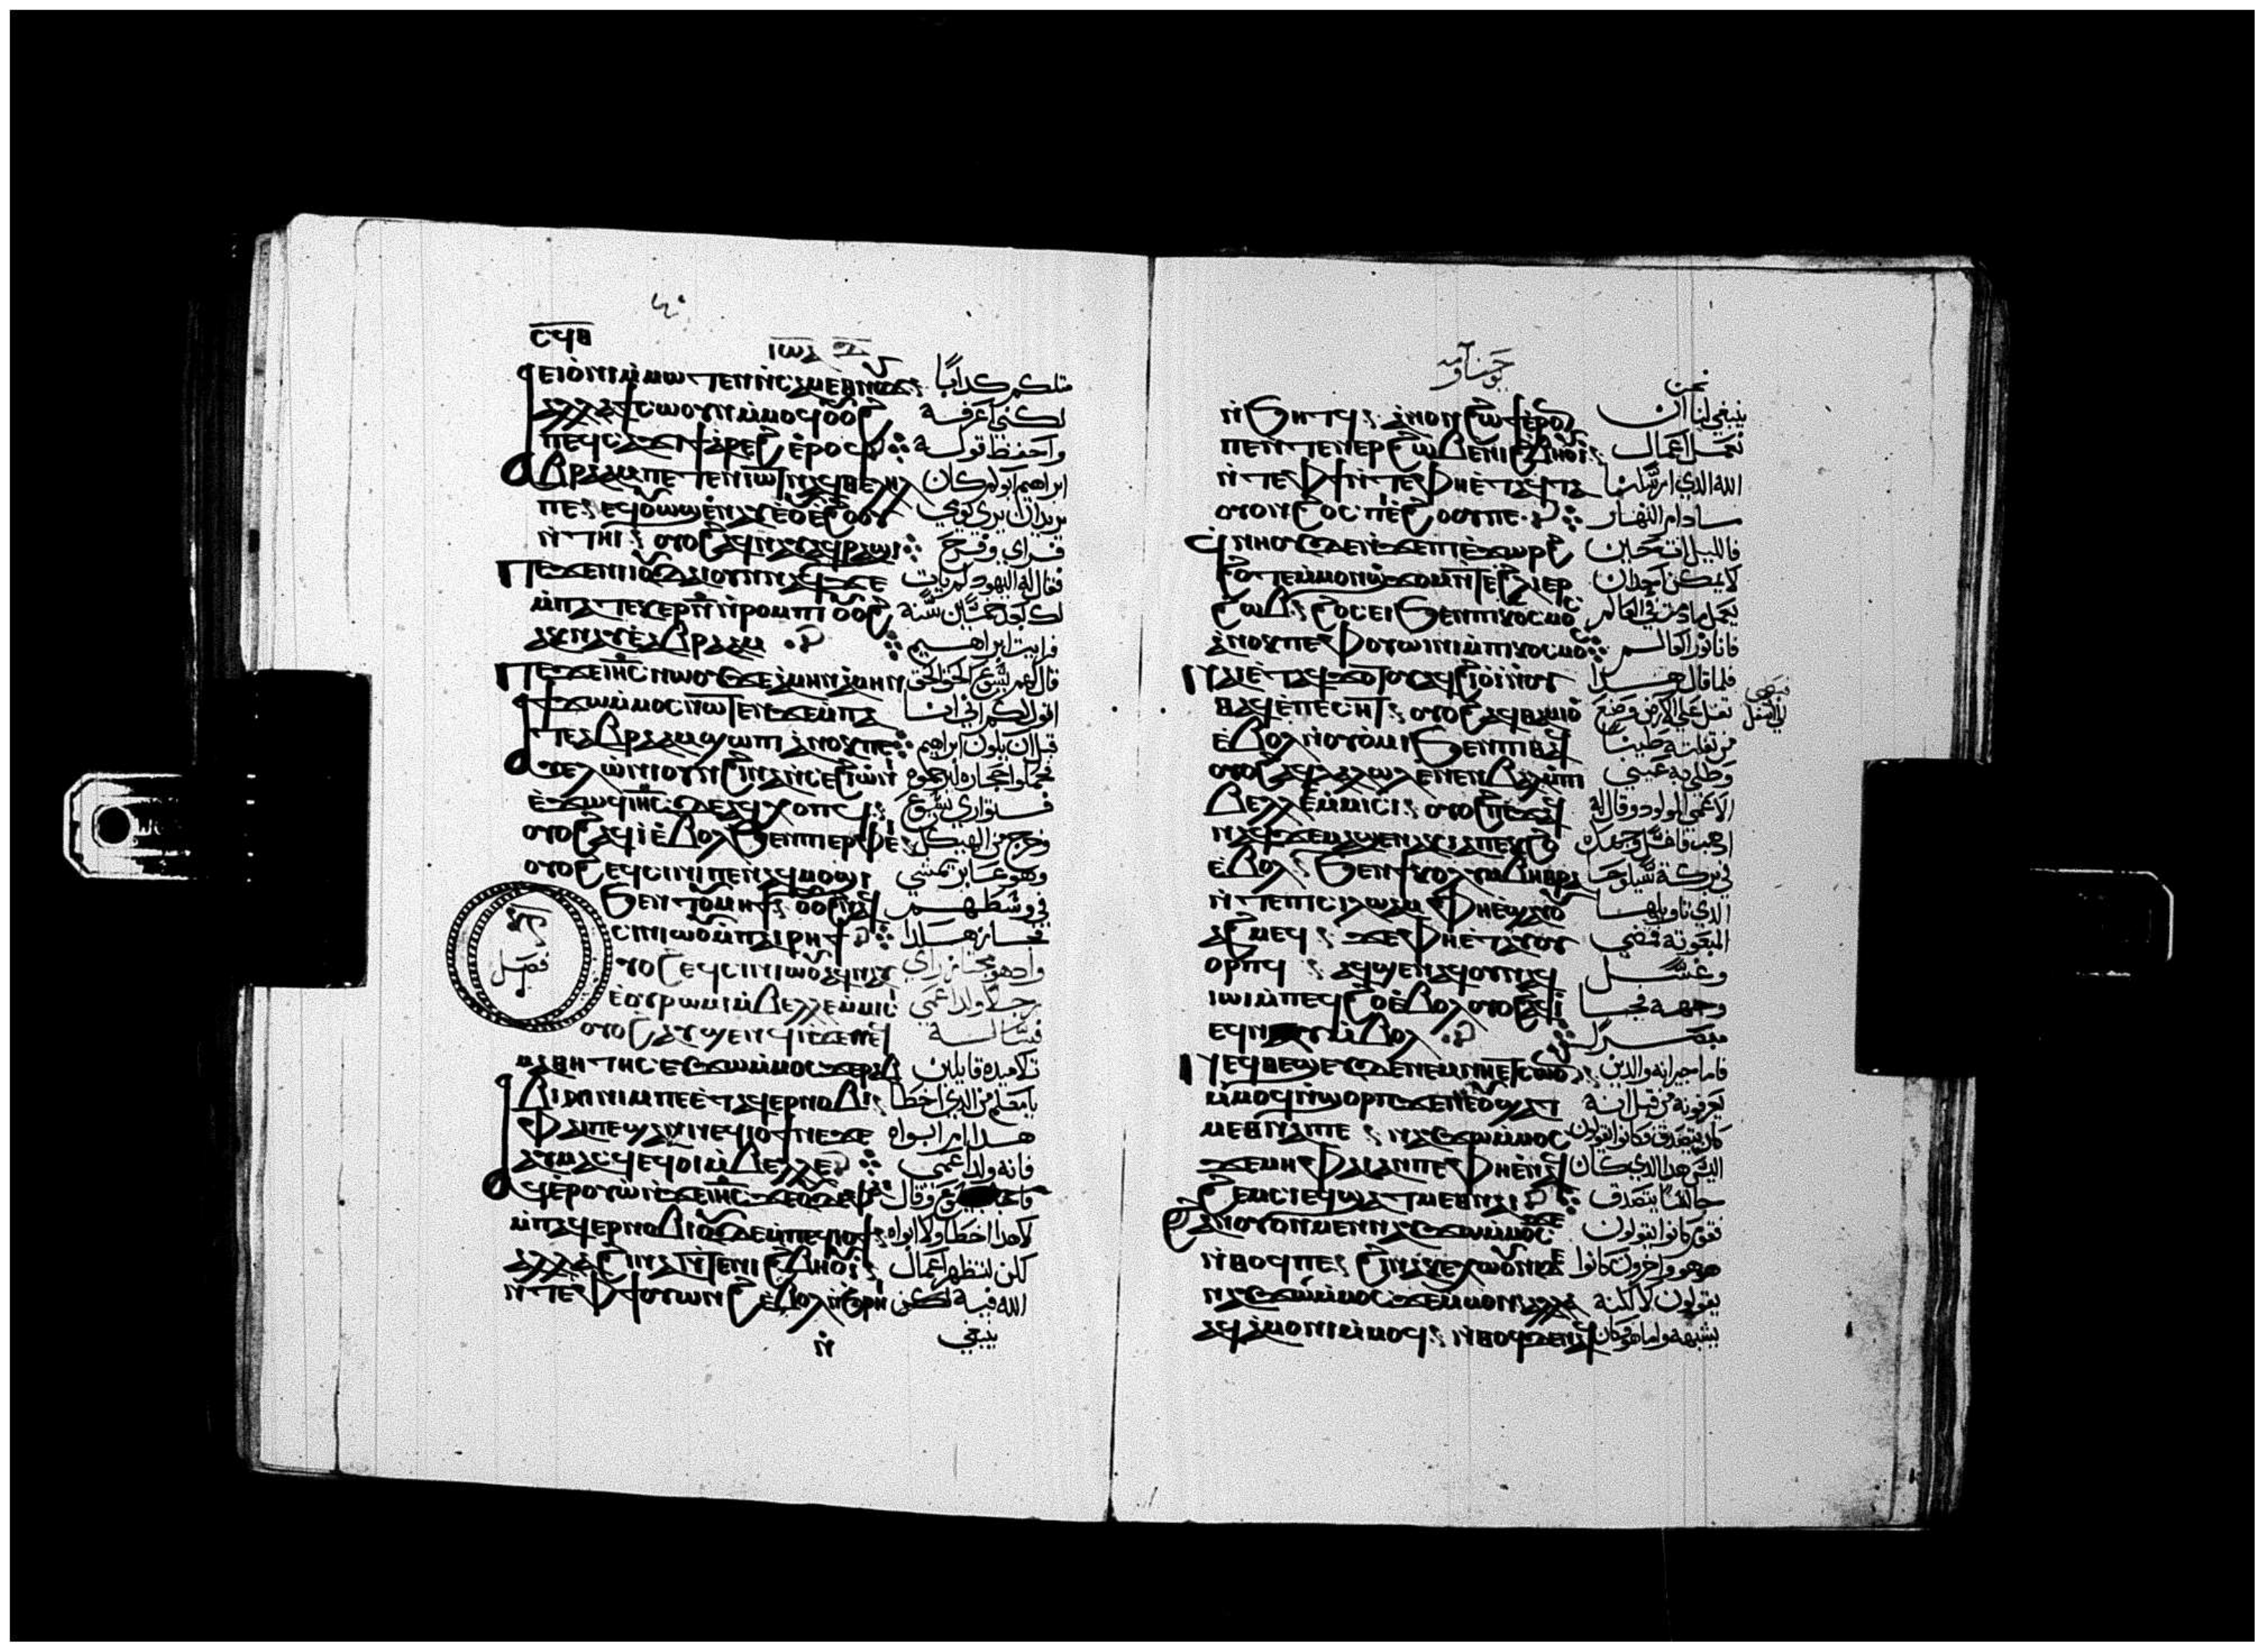 ⲥϥⲃ
ⲓⲱⲁ
ⲉⲓⲟ̀ⲛⲓ ⲙ̀ⲙⲱⲧⲉⲛ ⲛ̀ⲥⲁⲙⲉⲑⲛⲟⲩϫ مثلكم كدابا
ⲁⲗⲗⲁ ϯⲥⲱⲟⲩⲛ ⲙ̀ⲙⲟϥ ⲟⲩⲟϩ لكني اعرفة
ⲡⲉϥⲥⲁϫⲓ ϯⲁ̀ⲣⲉϩ ⲉ̀ⲣⲟϥ واحفظ قوله
ⲁⲃⲣⲁⲁⲙ ⲡⲉⲧⲉⲛⲓⲱⲧ ⲛⲁϥⲑⲉⲗⲏⲗ ابراهيم ابوكم كان
ⲡⲉ ⲉϥⲟⲩⲱϣ ⲉ̀ⲛⲁⲩ ⲉ̀ⲟⲩⲉ̀ϩⲟⲟⲩ يريد ان يري يومي
ⲛ̀ⲧⲏⲓ ⲟⲩⲟϩ ⲁϥⲛⲁⲩ ⲁϥⲣⲁϣⲓ فراي وفرح
ⲡⲉϫⲉ ⲛⲓⲓⲟⲩⲇⲁⲓ ⲟⲩⲛ ⲛⲁϥ ϫⲉ فقال له اليهود لم يات
ⲙ̀ⲡⲁⲧⲉⲕⲉⲣ ⲛ̅ ⲛ̀ⲣⲟⲙⲡⲓ ⲟⲩⲟϩ لك بعد خمسين سنة
ⲁⲕⲛⲁⲩ ⲉ̀ⲁⲃⲣⲁⲁⲙ فرايت ابراهيم
ⲡⲉϫⲉ ⲓⲏ̅ⲥ̅ ⲛⲱⲟⲩ ϫⲉ ⲁ̀ⲙⲏⲛ ⲁ̀ⲙⲏⲛ قال لهم يسوع الحق الحق
ϯϫⲱ ⲙ̀ⲙⲟⲥ ⲛⲱⲧⲉⲛ ϫⲉ ⲙ̀ⲡⲁ اقول لكم اني انا
ⲧⲉ ⲁⲃⲣⲁⲁⲙ ϣⲱⲡⲓ ⲁ̀ⲛⲟⲕ ⲡⲉ قبل ان يكون ابراهيم
ⲁⲩⲉⲗ ⲱ̀ⲛⲓ ⲟⲩⲛ ϩⲓⲛⲁ ⲛ̀ⲥⲉϩⲓⲟⲩⲓ̀ فحملوا حجاره ليرجموه
ⲉ̀ϫⲱϥ ⲓⲏ̅ⲥ̅ ⲇⲉ ⲁϥⲭⲟⲡϥ فتواري يسوع
ⲟⲩⲟϩ ⲁϥⲓ̀ ⲉ̀ⲃⲟⲗ ϧⲉⲛ ⲡⲓⲉⲣⲫⲉⲓ وخرج من الهيكل
ⲟⲩⲟϩ ⲉϥⲥⲓⲛⲓ ⲡⲉ ⲛⲁϥⲙⲟϣⲓ وهو عابر يمشي
ϧⲉⲛ ⲧⲟⲩⲙⲏϯ ⲟⲩⲟϩ ⲛⲁϥ في وسطهم
فصل
ⲥⲓⲛⲓⲱⲟⲩ ⲙ̀ⲡⲁⲓⲣⲏϯ مجاز هكذا
ⲟⲩⲟϩ ⲉϥⲥⲓⲛⲓⲱⲟⲩ ⲁϥⲛⲁⲩ واد هو مجتاز راي
ⲉ̀ⲟⲩⲣⲱⲙⲓ ⲙ̀ⲃⲉⲗⲗⲉ ⲙ̀ⲙⲓⲥⲓ رجلا ولد اعمي
ⲟⲩⲟϩ ⲁⲩϣⲉⲛϥ ⲛ̀ϫⲉ ⲛⲉϥ فسالـه
ⲙⲁⲑⲏⲧⲏⲥ ⲉⲩϫⲱ ⲙ̀ⲙⲟⲥ ϫⲉ ⲣⲁⲃ تلاميده قايلين
ⲃⲓ ⲛⲓⲙ ⲡⲉ ⲉ̀ⲧⲁϥⲉⲣⲛⲟⲃⲓ يا معلم من الدي اخطا
ⲫⲁⲓ ⲡⲉ ϣⲁⲛ ⲛⲉϥⲓⲟϯ ⲛⲉ ϫⲉ هدا ام ابواه
ⲁⲩⲙⲁⲥϥ ⲉϥⲟⲓ ⲙ̀ⲃⲉⲗⲗⲉ فانه ولد اعمي
ⲁϥⲉ̀ⲣⲟⲩⲱ̀ ⲛ̀ϫⲉ ⲓⲏ̅ⲥ̅ ϫⲉ ⲟⲩⲇⲉ ⲫⲁⲓ وقال
ⲙ̀ⲡⲁϥⲉⲣⲛⲟⲃⲓ ⲟⲩⲇⲉ ⲙ̀ⲡⲉϥⲓⲟϯ لا هدا اخطا ولا ابواه
ⲁⲗⲗⲁ ϩⲓⲛⲁ ⲛ̀ⲧⲉ ⲛⲓϩⲃⲏⲟⲩⲓ̀ لكن لتظهر اعمال
ⲛ̀ⲧⲉ ⲫϯ ⲟⲩⲱⲛϩ ⲉ̀ⲃⲟⲗ ⲛ̀ϧⲣⲏⲓ الله فيه لكن
ⲛ̀ ينبغي
يوحنا
نحن
ⲛ̀ϧⲏⲧϥ ⲁ̀ⲛⲟⲛ ϩⲱϯ ⲉ̀ⲣⲟⲛ ينبغي لنا ان
ⲡⲉ ⲛ̀ⲧⲉⲛⲉⲣϩⲱⲃ ⲉ̀ⲛⲓϩⲃⲏⲟⲩⲓ̀ نعمل اعمال
ⲛ̀ⲧⲉ ⲫϯ ⲛ̀ⲧⲉ ⲫⲏ ⲉ̀ⲧⲁϥⲧⲁ الله الدي ارسلنا
ⲟⲩⲟⲛ ϩⲟⲥ ⲡⲓⲉ̀ϩⲟⲟⲩ ⲡⲉ مادام النهار
ϥⲛⲏⲟⲩ ⲛ̀ϫⲉ ⲡⲓⲉ̀ϫⲱⲣϩ فالليل ات حين
ϩⲟⲧⲉ ⲙ̀ⲙⲟⲛ ϣϫⲟⲙ ⲛ̀ⲧⲉ ϩⲗⲓ ⲉⲣ لا يمكن احدا ان
ϩⲱⲃ ϩⲟⲥ ⲉⲓ ϧⲉⲛ ⲡⲓⲕⲟⲥⲙⲟⲥ يعمل مادمت في العالم
ⲁ̀ⲛⲟⲕ ⲡⲉ ⲫⲟⲩⲱⲓⲛⲓ ⲙ̀ⲡⲓⲕⲟⲥⲙⲟⲥ فانا نور العالم
ⲛⲁⲓ ⲉ̀ⲧⲁϥϫⲟⲧⲟⲩ ⲁϥϩⲓⲟⲩⲓ̀ ⲛ̀ⲟⲩ فلما قال هدا
ⲑⲁϥ ⲉ̀ⲡⲉⲥⲏⲧ ⲟⲩⲟϩ ⲁϥⲑⲁⲙⲓⲟ̀ تفل علي الارض وصنع
ⲉ̀ⲃⲟⲗ ⲛ̀ⲟⲩⲟ̀ⲙⲓ ϧⲉⲛ ⲡⲓⲑⲁϥ من تفلته طينا
ⲟⲩⲟϩ ⲁϥⲗⲁⲗⲱ ⲛⲉⲛⲃⲁⲗ ⲙ̀ⲡⲓ وطلي به عيني
ⲃⲉⲗⲗⲉ ⲙ̀ⲙⲓⲥⲓ ⲟⲩⲟϩ ⲡⲉϫⲁϥ الاعمي المولود وقال له
ⲛⲁϥ ϫⲉ ⲙⲁϣⲉⲛⲁⲕ ⲓⲁ ⲡⲉⲕϩⲟ ادهب فاغسل وجهك
ⲉ̀ⲃⲟⲗ ϧⲉⲛ ϯⲕⲟⲗⲩⲙⲃⲏⲑⲣⲁ في بركة سيلوحا
ⲛ̀ⲧⲉ ⲡⲓⲥⲓⲗⲱⲁⲙ ⲫⲏ ⲉ̀ϣⲁⲩⲟⲩ الدي تاويلها
ⲁϩⲙⲉϥ ϫⲉ ⲫⲏ ⲉ̀ⲧⲁⲩⲟⲩ المبعوثه فمضي
ⲟⲣⲡϥ ⲁϥϣⲉⲛⲁϥ ⲟⲩⲛ ⲁϥ وغسل
ⲓⲱⲓ ⲙ̀ⲡⲉϥϩⲟ ⲉ̀ⲃⲟⲗ ⲟⲩⲟϩ ⲁϥⲓ̀ وجهه فجا
ⲉϥⲛⲁⲩ ⲙ̀ⲃⲟⲗ مبصر
ⲛⲉϥⲑⲉϣⲉⲩ ⲇⲉ ⲛⲉⲙ ⲛⲏ ⲉⲧⲥⲱⲟⲩⲛ فاما جيرانه والدين
ⲙ̀ⲙⲟϥ ⲛ̀ϣⲟⲣⲡ ϫⲉ ⲛⲉ ⲟⲩϣⲁⲧ يعرفونه من قبل انه
ⲙⲉⲑⲛⲁⲓ ⲡⲉ ⲛⲁⲩϫⲱ ⲙ̀ⲙⲟⲥ كان يتصدق فكانوا يقولون
ϫⲉ ⲙⲏ ⲫⲁⲓ ⲁⲛ ⲡⲉ ⲫⲏ ⲉ̀ⲛⲁϥ اليس هدا الدي كان
ϩⲉⲙⲥⲓ ⲉϥϣⲁⲧ ⲙⲉⲑⲛⲁⲓ جالسا يتصدق
ϩⲁⲛⲟⲩⲟⲛ ⲙⲉⲛ ⲛⲁⲩϫⲱ ⲙ̀ⲙⲟⲥ ϫⲉ فقوم كانوا يقولون
ⲛ̀ⲑⲟϥ ⲡⲉ ϩⲁⲛⲕⲉⲭⲱⲟⲩⲛⲓ ⲇⲉ هو هو واخرون كانوا
ⲛⲁⲩϫⲱ ⲙ̀ⲙⲟⲥ ϫⲉ ⲙ̀ⲙⲟⲛ ⲁⲗⲗⲁ يقولون لا لكنه
ⲁϥⲟ̀ⲛⲓ ⲙ̀ⲙⲟϥ ⲛ̀ⲑⲟϥ ⲇⲉ ⲛⲁϥ يشبهه واما هو فكان